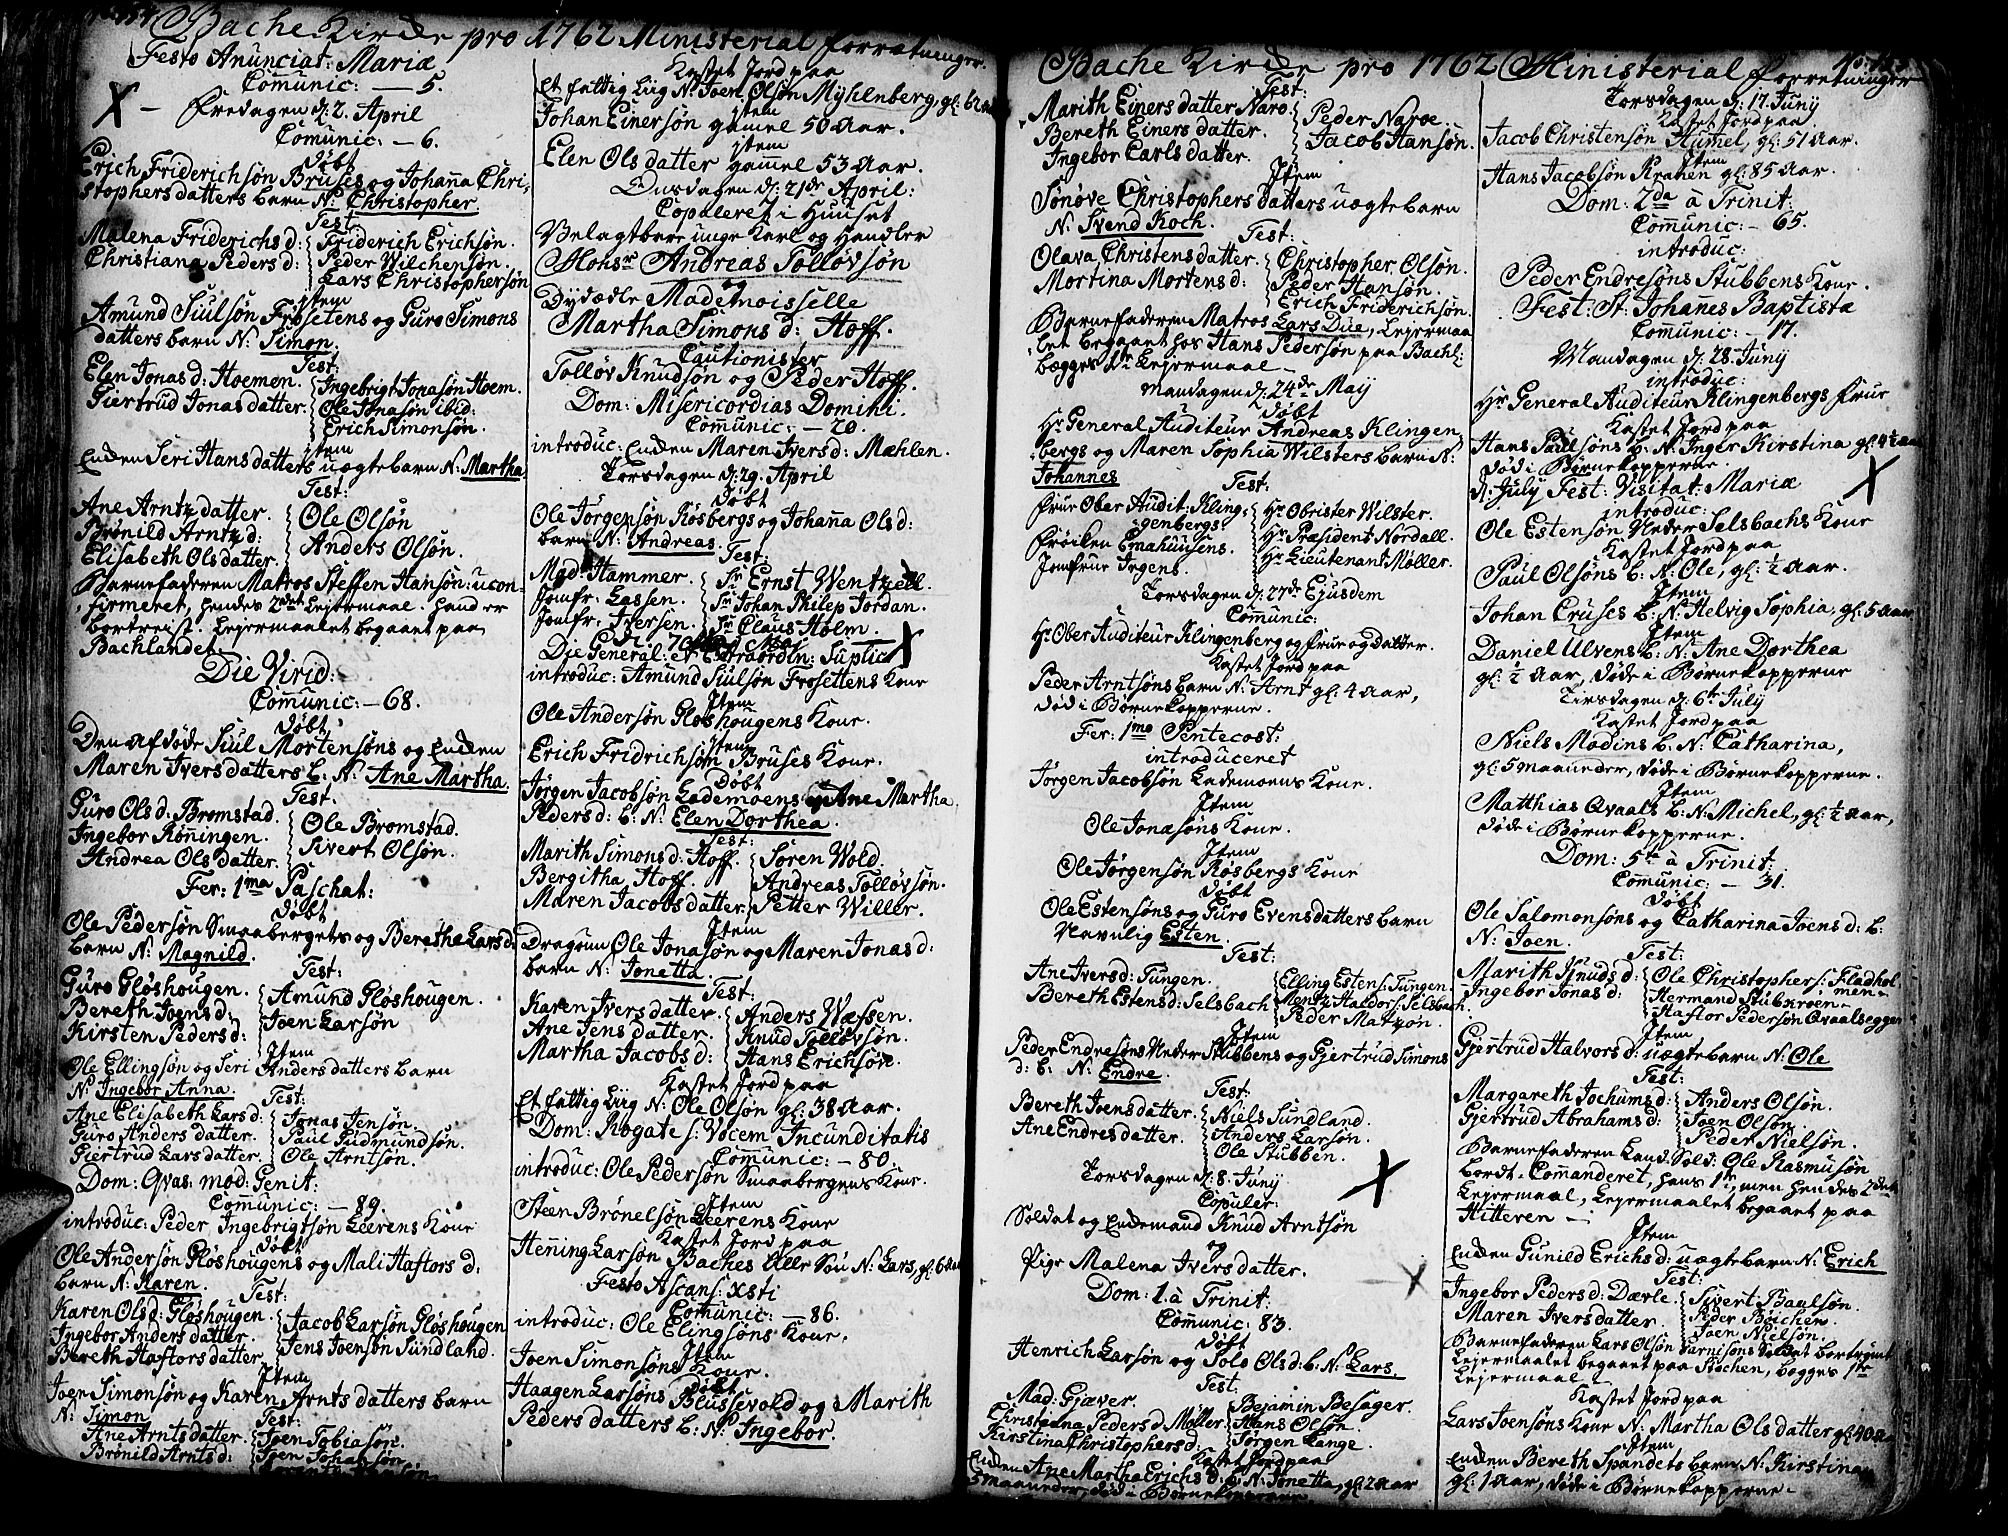 Bache Kirche pro 1762 Ministerial Forretninger.
Festo Anunciat: Mariæ
Comunic: — 5.
X – Fredagen d: 2. April
Comunic: – 6.
Døbt
Erich Friderichsøn Bruses og Johaña Chri,
stophersdatters barn N: Christopher.
Test
Malena Friderichsd:
Christiana Pedersd:
Friderich Erichsøn.
Peder Wilchensøn.
Lars Christophersøn
Item
Amund Siulsøn Frosetens og Guro Simons
datters barn N: Simon.
Test:
Elen Jonasd: Hoemon.
Giertrud Jonasdatter.
Ingebrigt Jonasøn Hoem.
Ole Jonasøn ibid:
Erich Simonsøn.
Item
Enken Seri Hansdatters uægtebarn N: Martha.
Test:
Ane Arntzdatter.
Brønild Arntzd:
Elisabeth Olsdatter.
Ole Olsøn
Anders Olsøn.
Barnefaderen Matros Steffen Hansøn: ucon,
firmeret, hendes 2det Lejermaal. Hand er
bortreist. Lejermaalet begaaet paa
Bachlandet.
Die Virid:
Comunic: – 68.
Døbt
Den afdøde Siul Mortensøns og Enken
Maren Iversdatters b: N: Ane Martha.
Test.
Guro Olsd: Bromstad.
Ingebor Røñingen.
Andrea Olsdatter.
Ole Bromstad.
Sivert Olsøn.
Fer: 1ma Paschat:
Døbt
Ole Pedersøn Smaabergets og Berethe Larsd:
barn N: Magnild.
Test:
Guro Gløshougen.
Bereth Joensd:
Kirsten Pedersd:
Amund Gløshougen.
Joen Larsøn
Item
Ole Ellingsøn og Seri Andersdatters barn
N: Ingebor Anna.
Test:
Ane Elisabeth Larsd:
Guro Andersdatter.
Giertrud Larsdatter.
Jonas Jensøn.
Paul Gudmundsøn.
Ole Arntsøn.
Dom: Qvas: mod: Genit:
Comunic: – 89.
introduc: Peder Ingebrigtsøn Leerens Kone
Døbt
Ole Andersøn Gløshougens og Mali Haftorsd:
barn N: Karen.
Test:
Karen Olsd: Gløshougen.
Ingebor Andersdatter.
Bereth Haftorsdatter
Jacob Larsøn Gløshougen
Jens Joensøn Sundland.
Item
Joen Simonsøn og Karen Arntsdatters barn
N: Simon
Test:
Ane Arntsdatter.
Brønild Arntsd:
Joen Tobiasøn.
Joen Johansøn
Kastet Jord paa
Et fattig Liig N: Joen Olsøn Myhlenberg, gl: 62 aar
Item
Johan Einersøn gamel 50 Aar.
Item
Elen Olsdatter gamel 53 Aar.
Onsdagen d: 21de April:
Copuleret i Huuset
Velagtbare unge Karl og Handler
Mohsr Andreas Tolløvsøn
og
Dydædle Mademoisselle
Martha Simonsd: Hoff.
Cautionister
Tolløv Knudsøn og Peder Hoff.
Dom: Misericordias Domini.
Comunic: – 20.
introduc: Enken Maren Iversd: Mæhlen.
Torsdagen d: 29. April
Døbt
Ole Jørgensøn Røsbergs og Johaña Olsd:
barn N: Andreas.
Test:
Mad: Hammer.
Jomfr: Lassen.
Jomfr: Iversen.
Sr Ernst Wentzell.
Sr Johan Philep Jordan.
Sr Claus Holm.
Die General: & Extraordin: Suplic: X
introduc: Amund Siulsøn Frosettens Kone
Item
Ole Andersøn Gløshougens Kone.
Item
Erich Fridrichsøn Bruses Kone.
Døbt
Jørgen Jacobsøn Lademoens og Ane Martha
Pedersd: b: N: Elen Dorthea.
Test:
Marith Simonsd: Hoff.
Bergitha Hoff.
Maren Jacobsdatter.
Søren Wold.
Andreas Tolløvsøn.
Petter Willer.
Item
Dragoun Ole Jonasøn og Maren Jonasd:
barn N: Jonetta.
Test:
Karen Iversdatter.
Ane Jensdatter.
Martha Jacobsd:
Anders Wæssen.
Knud Tolløvsøn.
Hans Erichsøn.
Kastet Jord paa
Et fattig Liig N: Ole Olsøn gl: 38 Aar.
Dom: Rogate s: Vocem Incunditatis
Comunic: – 80
introduc: Ole Pedersøn Smaabergens Kone.
Item
Steen Brønelsøn Leerens Kone
Kastet Jord paa
Heñing Larsøn Baches Ælle Søn N: Lars, gl: 6 Aar
Festo Ascens: xsti
Comunic: — 86.
introduc: Ole Elingsøns Kone.
Item
Joen Simonsøns Kone.
Døbt
Haagen Larsøns Blussevold og Marith
Pedersdatters b: N: Ingebor.
Bache Kirche pro 1762 Ministerial Forretninger
Test:
Marith Einersdatter Naro
Bereth Einersdatter.
Ingebor Carlsdatter.
Peder Naroe.
Jacob Hansøn.
Item
Sønøve Christophersdatters uægtebarn
N: Svend Koch.
Test:
Olava Christensdatter.
Mortina Mortensd:
Christopher Olsøn.
Peder Hansøn.
Erich Friderichsøn.
Barnefaderen Matros Lars Due, Lejermaa
let begaaet hos Hans Pedersøn paa Bachl:
begges 1te Lejermaal –
Mandagen d: 24de Maij
Døbt
Hr General Auditeur Andreas Klingen
bergs og Maren Sophia Wilsters barn N:
Johannes
Test:
Frue Ober Audit: Kling,
genbergs
Frøiken Emahuusens.
Jomfrue Irgens.
Hr Obrister Wilster.
Hr Præsident Nordall.
Hr Lieutenant Møller.
Torsdagen d: 27de Ejusdem
Comunic:
Hr Ober Auditeur Klingenberg og Frue og datter.
Kastet Jord paa
Peder Arntsøns barn N: Arnt gl: 4 Aar,
død i Børnekopperne.
Fer: 1mo Pentecost:
introduceret
Jørgen Jacobsøn Lademoens Kone.
Item
Ole Jonasøns Kone.
Item
Ole Jørgensøn Røsbergs Kone
Døbt
Ole Estensøns og Guro Evensdatters barn
Navnlig Esten.
Test:
Ane Iversd: Tungen.
Bereth Estensd: Selsbach
Elling Estens: Tungen
Mentz Haldors: Selsbach.
Peder Matzøn.
Item
Peder Endresøns Neder Stubbens og Gjertrud Simons
d: b: N: Endre.
Test:
Bereth Joensdatter.
Ane Endresdatter.
Niels Sundland.
Anders Larsøn.
Ole Stubben.
Torsdagen d: 8. Junij X
Copuler:
Soldat og Enkemand Knud Arntsøn
og
Pige Malena Iversdatter. X
Dom: 1. à Trinit:
Comunic: 83.
Døbt
Henrich Larsøn og Solo Olsd: b: N: Lars.
Test:
Mad: Gjæver.
Christiana Pedersd: Møller
Kirstina Christophersd:
Bejamin Besager.
Hans Olsøn.
Jørgen Lange.
Kastet Jord paa
Enken Ane Martha Erichsd: b: N: Jonetta, gl: 2 aar
5 maaneder, død i Børnekopperne
Torsdagen d: 17. Junij
Kastet Jord paa
Jacob Christensøn Humel, gl: 51 Aar.
Item
Hans Jacobsøn Krahen gl: 85 Aar.
Dom: 2da à Trinit:
Comunic: – 65.
introduc:
Peder Endresøns Stubbens Kone.
Fest: St: Johañes Baptistæ
Comunic: – 17.
Mandagen d: 28. Junij
introduc:
Hr General Auditeur Klingenbergs Frue
Kastet Jord paa
Hans Paulsøns b: N: Inger Kirstina gl: 4½ aar
død i Børnekopperne.
d: July Fest: Visitat: Mariæ X
introduc:
Ole Estensøn Neder Selsbachs Kone
Kastet Jord paa
Paul Olsøns b: N: Ole, gl: ½ Aar.
Item
Johan Cruses b: N: Helvig Sophia, gl: 5 Aar
Item
Daniel Ulvens b: N: Ane Dorthea
gl: ½ Aar, døde i Børnekopperne
Tirsdagen d: 6te July
Kastet Jord paa
Niels Madins b: N: Catharina,
gl: 5 maaneder, døde i Børnekopperne.
Item
Matthias Qvaals b: N: Michel, gl: ½ Aar,
døde i Børnekopperne.
Dom: 5te à Trinit:
Comunic: – 31.
Døbt
Ole Salomonsøns og Catharina Joensd: b:
N: Joen.
Test:
Marith Knudsd:
Ingebor Jonasd:
Ole Christophers: Fladhol
men–
Hermand Stubkroen–
Haftor Pedersøn Qvaalseggen
Item
Gjertrud Halvorsd: uægtebarn N: Ole
Test:
Margareth Jochumsd:
Gjertrud Abrahamsd:
Anders Olsøn.
Joen Olsøn.
Peder Nielsøn.
Barnefaderen Land: Sold: Ole Rasmusøn
bordt Commanderet, hans 1te, men hendes 2det
Lejermaal, Lejermaalet begaaet paa
Hitteren –
Item
Enken Gunild Erichsd: uægtebarn N: Erich
Test:
Ingebor Pedersd: Dærle.
Maren Iversdatter.
Sivert Paulsøn.
Peder Bøichen.
Joen Nielsøn.
Barnefaderen Lars Olsøn Garnisons Soldat bortrømt
Lejermaalet begaaet paa Bachen, begges 1te
Lejermaal
Kastet Jord paa
Lars Joensøns Kone N: Martha Olsdatter gl: 40 aar
Item
Enken Bereth Spandets barn N: Kirstina
gl: 1 Aar, døde i Børnekopperne–